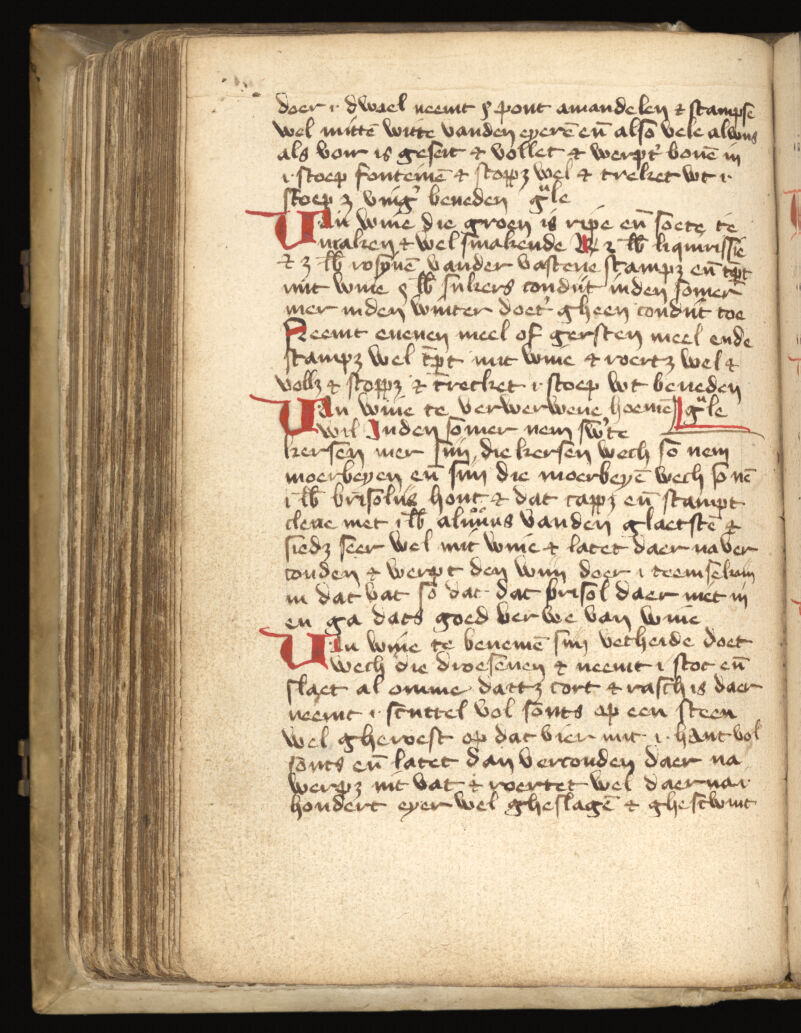 doer i dwael neemt ꝯ pont amandelen ⁊ stampse
wel mittē witte vanden eyerē eñ also vele aluns
als voir is geseit ⁊ vollet ⁊ werpt' bouē in
i stoep fonteinē ⁊ stoppꝫ wel ⁊ trecket wt i
stoep ꝫ vnig' beneden gͣle
Van wine die groen is ripe eñ soete te
maken ⁊ wel smakende ꝫ lb liquirissie
⁊ ꝫ lb rosynē vander vastene stampꝫ eñ
mit wine lb sukers conduit inden somer
mer inden winter doet' gheen conduit toe
Neemt euenen meel of gersten meel ende
stampꝫ wel mit wine ⁊ roertꝫ wel ⁊
vollꝫ ⁊ stoppꝫ ⁊ trecket i stoep wt beneden
Van wine te verwerwene hoemē gͣle
wil Inden somer nem
kersen mer sijn die kersen wech so nem
moerbeyen eñ sijn die moerbeyē wech so nē
i lb brisolijs hout ⁊ dat cappꝫ eñ stampt
clene met i lb aluuns vanden glaetstē ⁊
siedꝫ seer wel mit wine ⁊ latet daer na ver
couden ⁊ werpt den wijn doer i teemselkijn
in dat vat so dat dat brisol daer met in
en ga dats goed verwe van wine
Van wine te benemē sijn vetheide doet
wech die droesenen ⁊ neemt i stoc eñ
slaet al omme dattꝫ cort ⁊ rasch is daer
neemt i scuttel vol souts op een steen
wel gheroest op dat vier mit i hant vol
souts eñ latet dan vercouden daer na
werpꝫ int vat ⁊ roertet wel daer na i
hondert eyer wel gheslagē ⁊